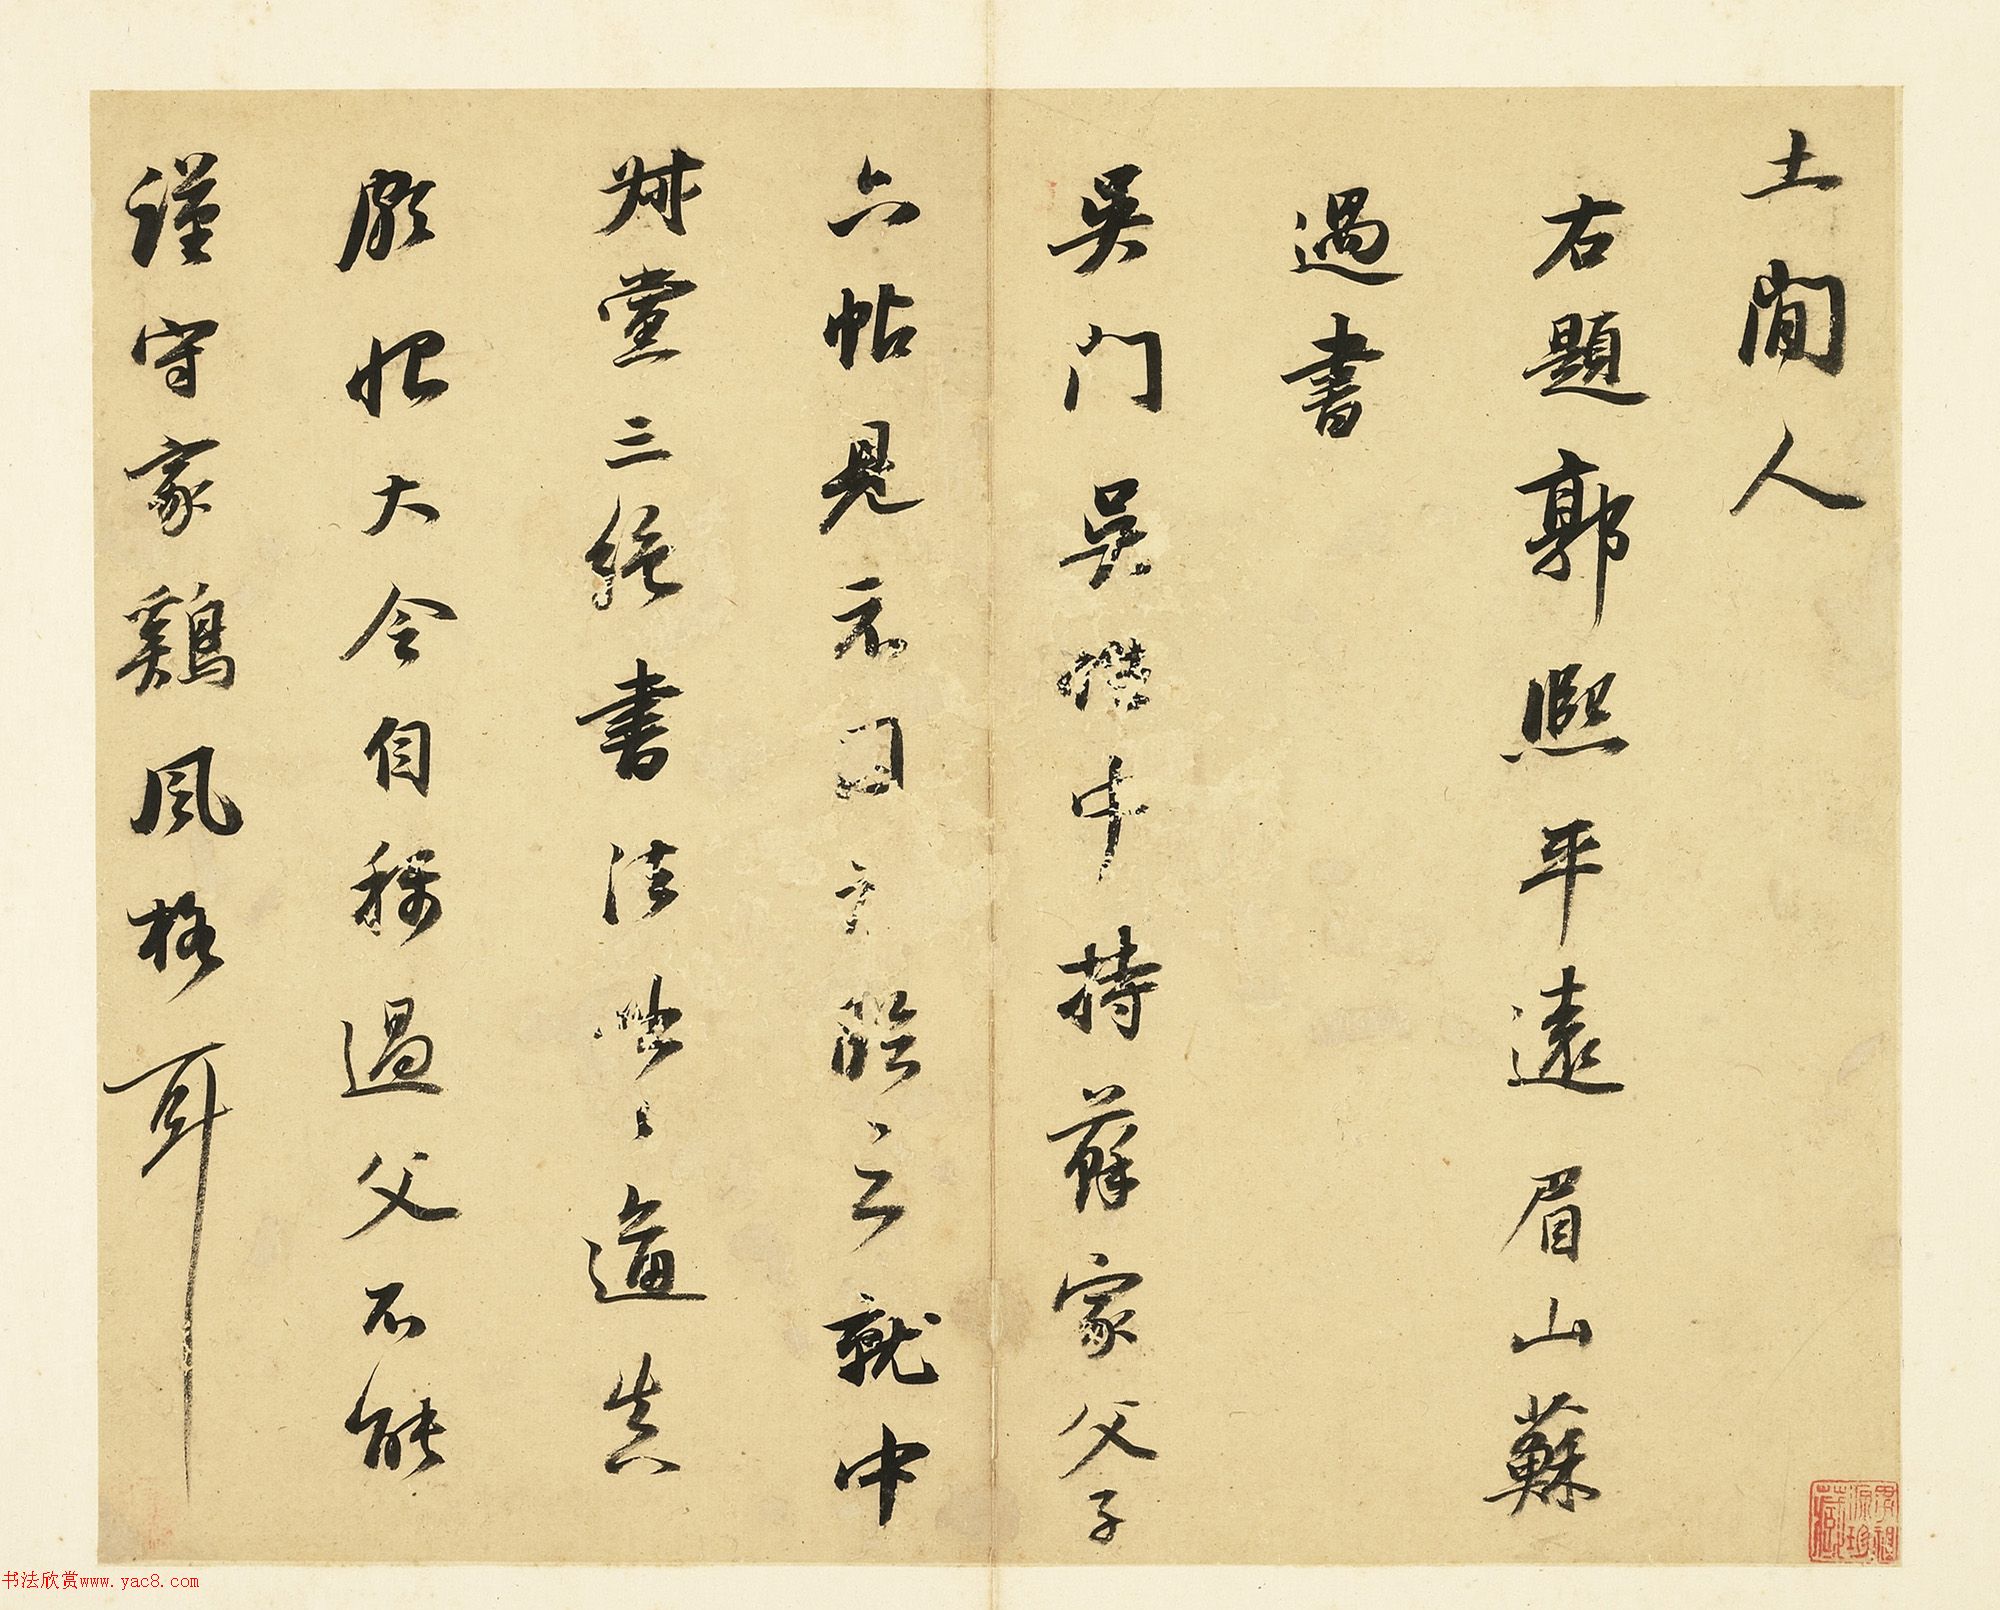 土閒人
右題郭熙平遠眉山蘇
過書
吳門吳 中持蘇家父子
六帖見示 臨之就中
叔黨三絕書法 遒真
頗恨大令自稱過父不能
謹守家鷄風格耳
书法欣赏www.yac8.com